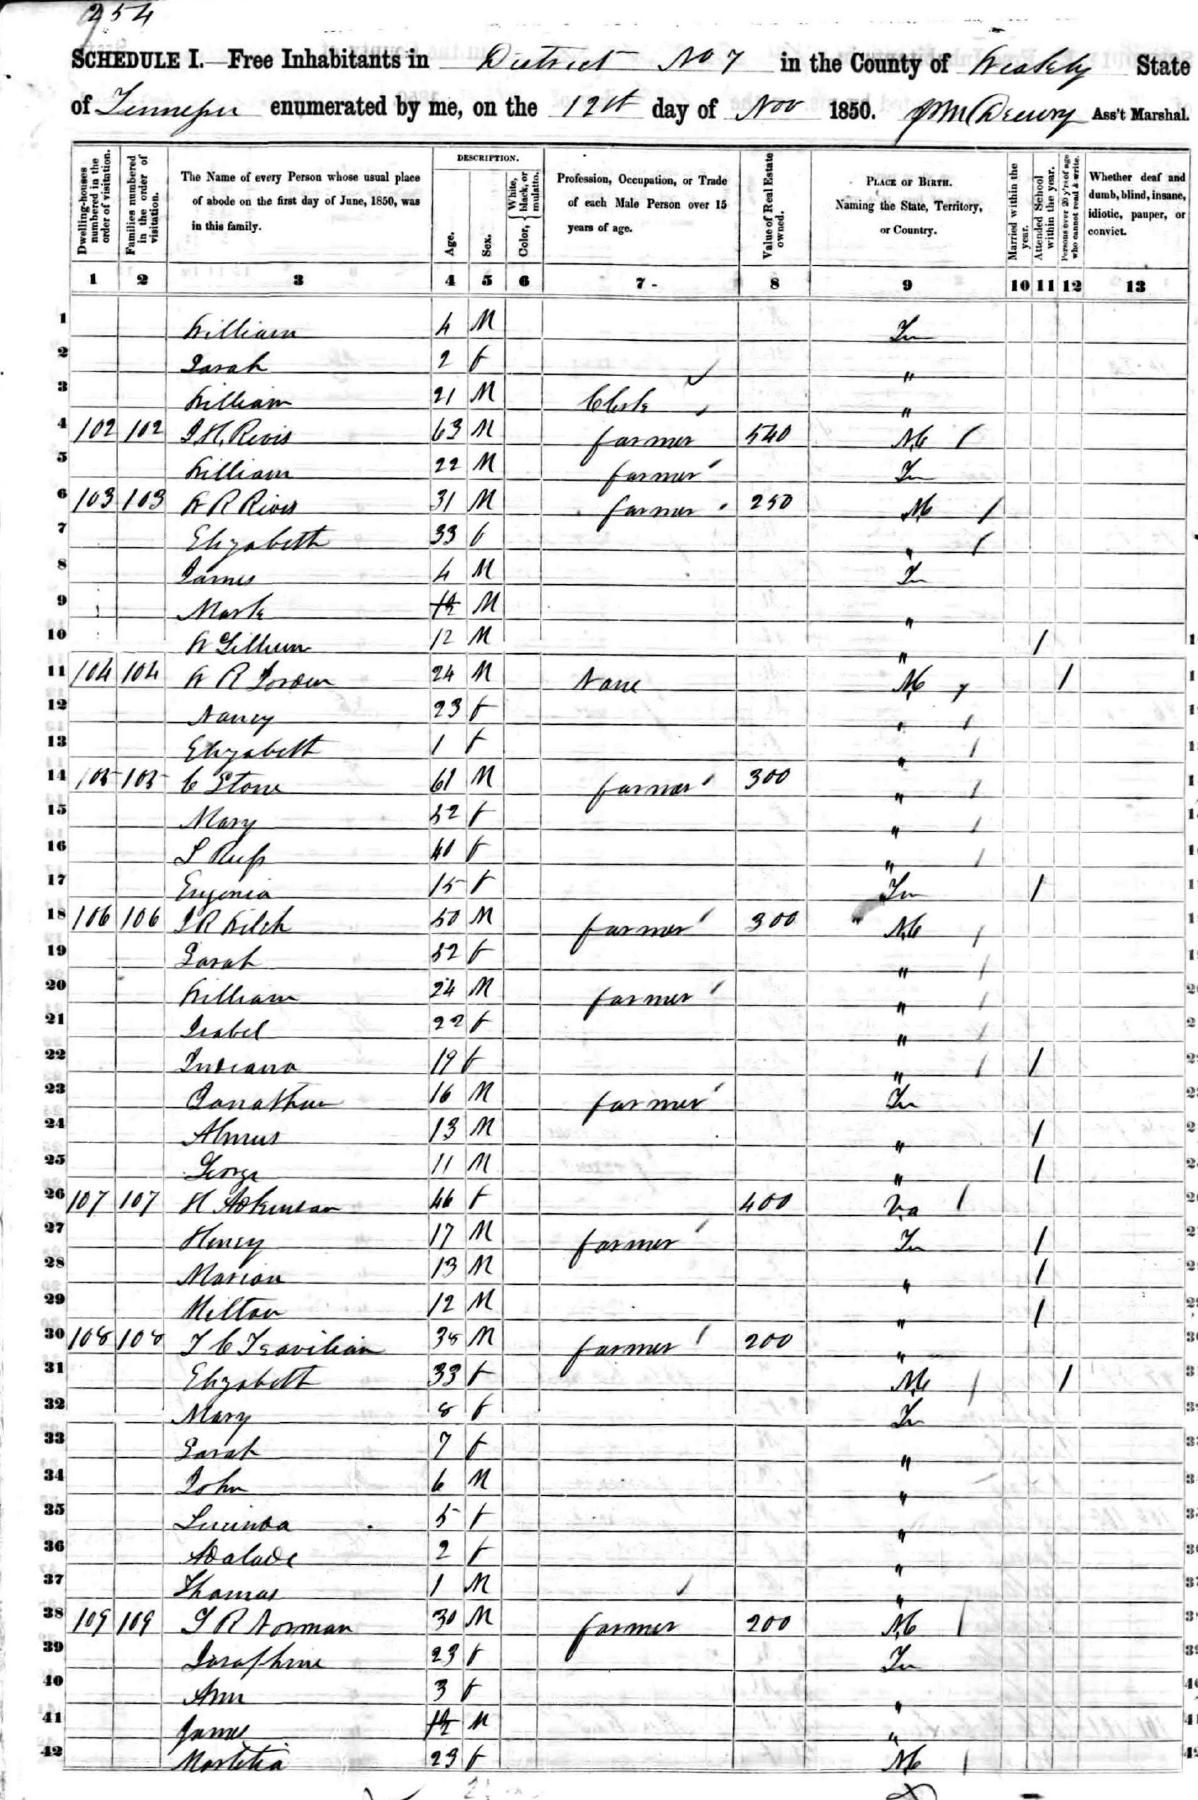 254
SCHEDULE I.—Free Inhabitants in District No 7 in the County of Weakly State
of Tennessee enumerated by me, on the 12th day of Nov 1850. Ass't Marshal.
Dwelling-houses numbered in the order of visitation.
Families numbered in the order of visitation.
The Name of every Person whose usual place of abode on the first day of June, 1850, was in this family.
DESCRIPTION.
Age.
Sex.
Color, { White, black, or mulatto.
Profession, Occupation, or Trade of each Male Person over 15 years of age.
Value of Real Estate owned.
PLACE OF BIRTH. Naming the State, Territory, or Country.
Married within the year.
Attended School within the year.
Persons over 20 y'rs of age who cannot read & write.
Whether deaf and dumb, blind, insane, idiotic, pauper, or convict.
1 2 3 4 5 6 7 8 9 10 11 12 13
1 William 4 M Tn
2 Sarah 2 f "
3 William 21 M Clerk "
4 102 102 63 M farmer 540 NC /
5 William 22 M farmer Tn
6 103 103 W R Rives 31 M farmer 250 NC /
7 Elizabeth 33 f " /
8 James 4 M Tn
9 Mark M "
10 12 M " /
11 104 104 W R 24 M None NC /
12 Nancy 23 f " /
13 Elizabeth 1 f " /
14 105 105 C Stone 61 M farmer 300 " /
15 Mary 52 f " /
16 f " /
17 Eugenia 15 f Tn /
18 106 106 50 M farmer 300 NC /
19 Sarah 52 f " /
20 William 24 M farmer " /
21 Isabel 22 f " /
22 Indiana 19 f " / /
23 Jonathan 16 M farmer Tn
24 13 M " /
25 George 11 M " /
26 107 107 H Adkinson 46 f 400 Va /
27 Henry 17 M farmer Tn /
28 Marion 13 M " /
29 Milton 12 M " /
30 108 108 38 M farmer 200 "
31 Elizabeth 33 f NC / /
32 Mary 8 f Tn
33 Sarah 7 f "
34 John 6 M "
35 Lucinda 5 f "
36 Adalade 2 f "
37 Thomas 1 M "
38 109 109 Norman 30 M farmer 200 NC /
39 Josephine 23 f Tn
40 Ann 3 f "
41 James M "
42 23 f NC /